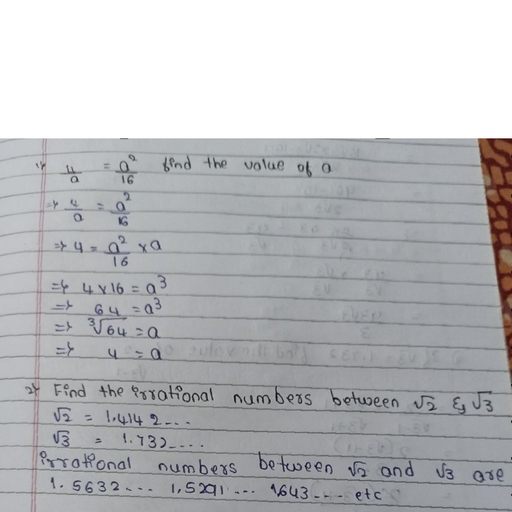 1) 4/a = a²/16 find the value of a
=> 4/a = a²/16
=> 4 = a²/16 x a
=> 4 x 16 = a³
=> 64 = a³
=> ³√64 = a
=> 4 = a
2) Find the irrational numbers between √2 & √3
√2 = 1.4142....
√3 = 1.732....
irrational numbers between √2 and √3 are
1.5632... 1.5291... 1643... etc